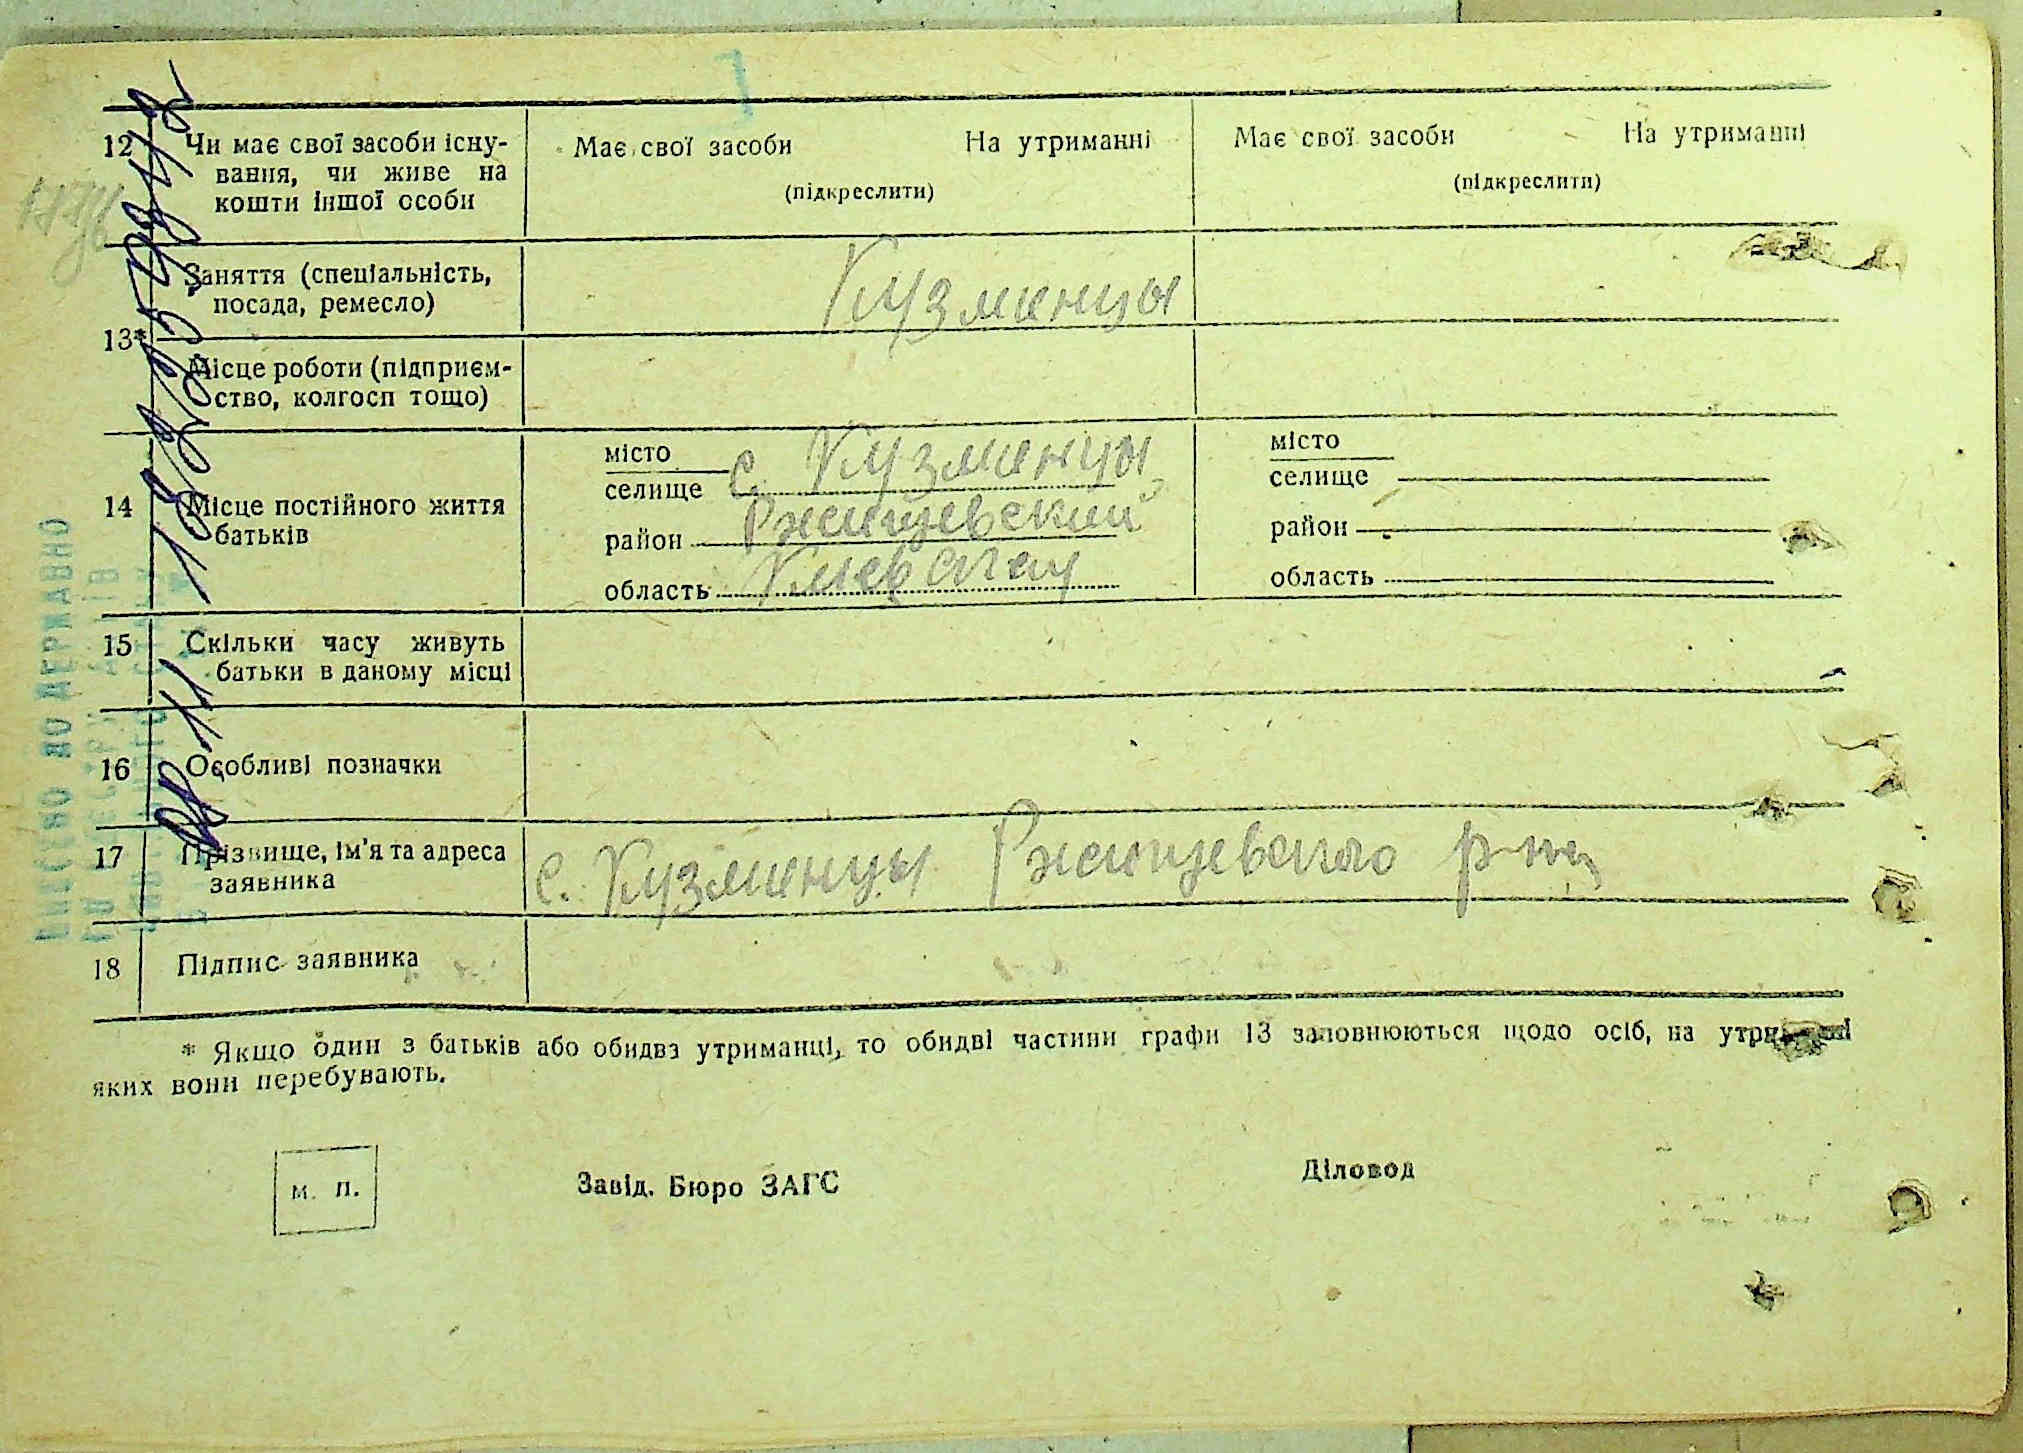 12 Чи має свої засоби існу- Має свої засоби На утриманні Має свої засоби На утриманні
вання, чи живе на (підкреслити) (підкреслити)
кошти іншої особи
Заняття (спеціальність, Кузминцы
посада, ремесло)
13*
Місце роботи (підприєм-
ство, колгосп тощо)
місто місто
селище с. Кузминцы селище
14 Місце постійного життя
батьків
район Ржищевский район
область Киевская область
15 Скільки часу живуть
батьки в даному місці
16 Особливі позначки
17 Прізвище, ім'я та адреса
заявника с. Кузминцы Ржищевского р-на
18 Підпис заявника
* Якщо один з батьків або обидва утриманці, то обидві частини графи 13 заповнюються щодо осіб, на утриманні
яких вони перебувають.
м. п. Завід. Бюро ЗАГС Діловод